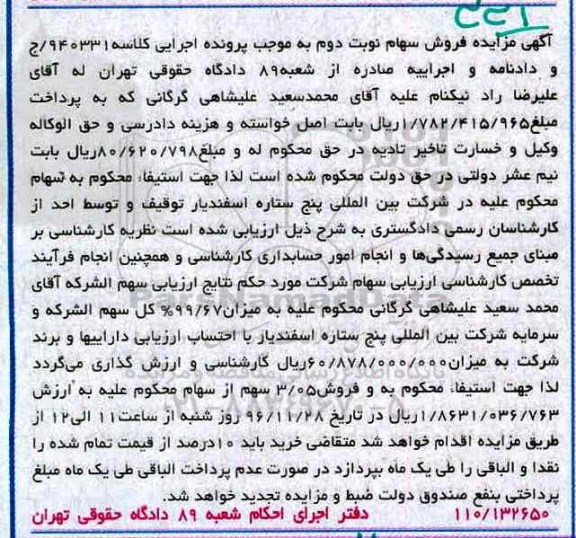 آگهی مزایده فروش سهام نوبت دوم به موجب پرونده اجرایی کلاسه۹۴۰۳۳۱/ج
و دادنامه و اجراییه صادره از شعبه۸۹ دادگاه حقوقی تهران له آقای
علیرضا راد نیکنام علیه آقای محمدسعید علیشاهی گرگانی که به پرداخت
مبلغ۱/۷۸۲/۴۱۵/۹۶۵ریال بابت اصل خواسته و هزینه دادرسی و حق الوکاله
وکیل و خسارت تاخیر تادیه در حق محکوم له و مبلغ۸۰/۶۲۰/۷۹۸ریال بابت
نیم عشر دولتی در حق دولت محکوم شده است لذا جهت استیفاء محکوم به سهام
محکوم علیه در شرکت بین المللی پنج ستاره اسفندیار توقیف و توسط احد از
کارشناسان رسمی دادگستری به شرح ذیل ارزیابی شده است نظریه کارشناسی بر
مبنای جمیع رسیدگی‌ها و انجام امور حسابداری کارشناسی و همچنین انجام فرآیند
تخصص کارشناسی ارزیابی سهام شرکت مورد حکم نتایج ارزیابی سهم الشرکه آقای
محمد سعید علیشاهی گرگانی محکوم علیه به میزان۹۹/۶۷% کل سهم الشرکه و
سرمایه شرکت بین المللی پنج ستاره اسفندیار با احتساب ارزیابی داراییها و برند
شرکت به میزان۶۰/۸۷۸/۰۰۰/۰۰۰ریال کارشناسی و ارزش گذاری می‌گردد
لذا جهت استیفاء محکوم به و فروش۳/۰۵ سهم از سهام محکوم علیه به ارزش
۱/۸۶۳۱/۰۳۶/۷۶۳ریال در تاریخ ۹۶/۱۱/۲۸ روز شنبه از ساعت۱۱ الی۱۲ از
طریق مزایده اقدام خواهد شد متقاضی خرید باید ۱۰درصد از قیمت تمام شده را
نقدا و الباقی را طی یک ماه بپردازد در صورت عدم پرداخت الباقی طی یک ماه مبلغ
پرداختی بنفع صندوق دولت ضبط و مزایده تجدید خواهد شد.
۱۱۰/۱۳۲۶۵۰ دفتر اجرای احکام شعبه ۸۹ دادگاه حقوقی تهران